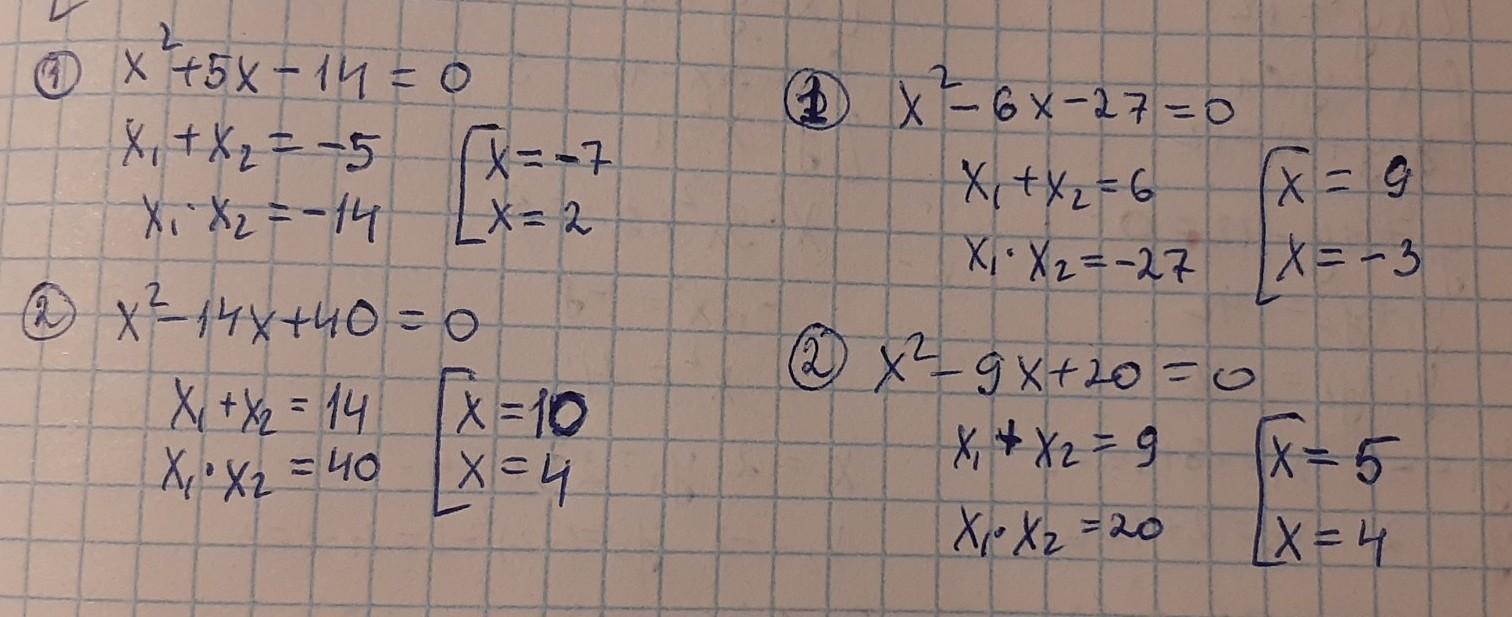 ① x²+5x-14=0
x₁+x₂=-5
x₁·x₂=-14
[x=-7
x=2
② x²-14x+40=0
x₁+x₂=14
x₁·x₂=40
[x=10
x=4
① x²-6x-27=0
x₁+x₂=6
x₁·x₂=-27
[x=9
x=-3
② x²-9x+20=0
x₁+x₂=9
x₁·x₂=20
[x=5
x=4